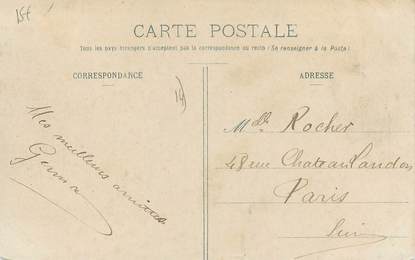 15f
CARTE POSTALE
Tous les pays étrangers n'acceptent pas la correspondance au recto (Se renseigner à la Poste)
CORRESPONDANCE
ADRESSE
14
Mes meilleures amitiés
Mlle Rocher
48 rue Chateau Landon
Paris